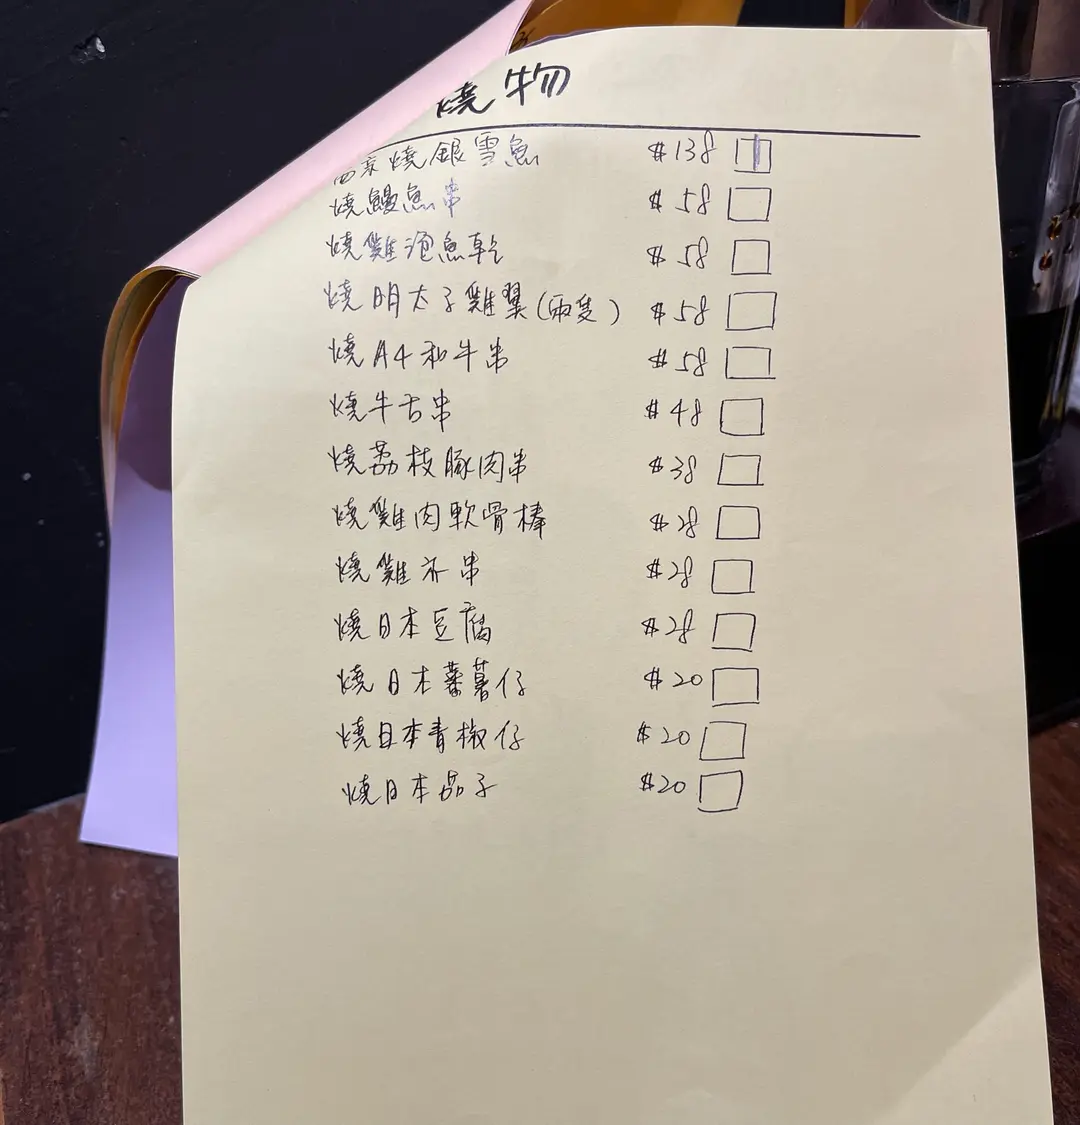 燒物
西京燒銀雪魚 $138
燒鰻魚串 $58
燒雞泡魚乾 $58
燒明太子雞翼(兩隻) $58
燒A4和牛串 $58
燒牛舌串 $48
燒荔枝豚肉串 $38
燒雞肉軟骨棒 $28
燒雞串 $28
燒日本豆腐 $28
燒日本蕃薯仔 $20
燒日本青椒仔 $20
燒日本茄子 $20